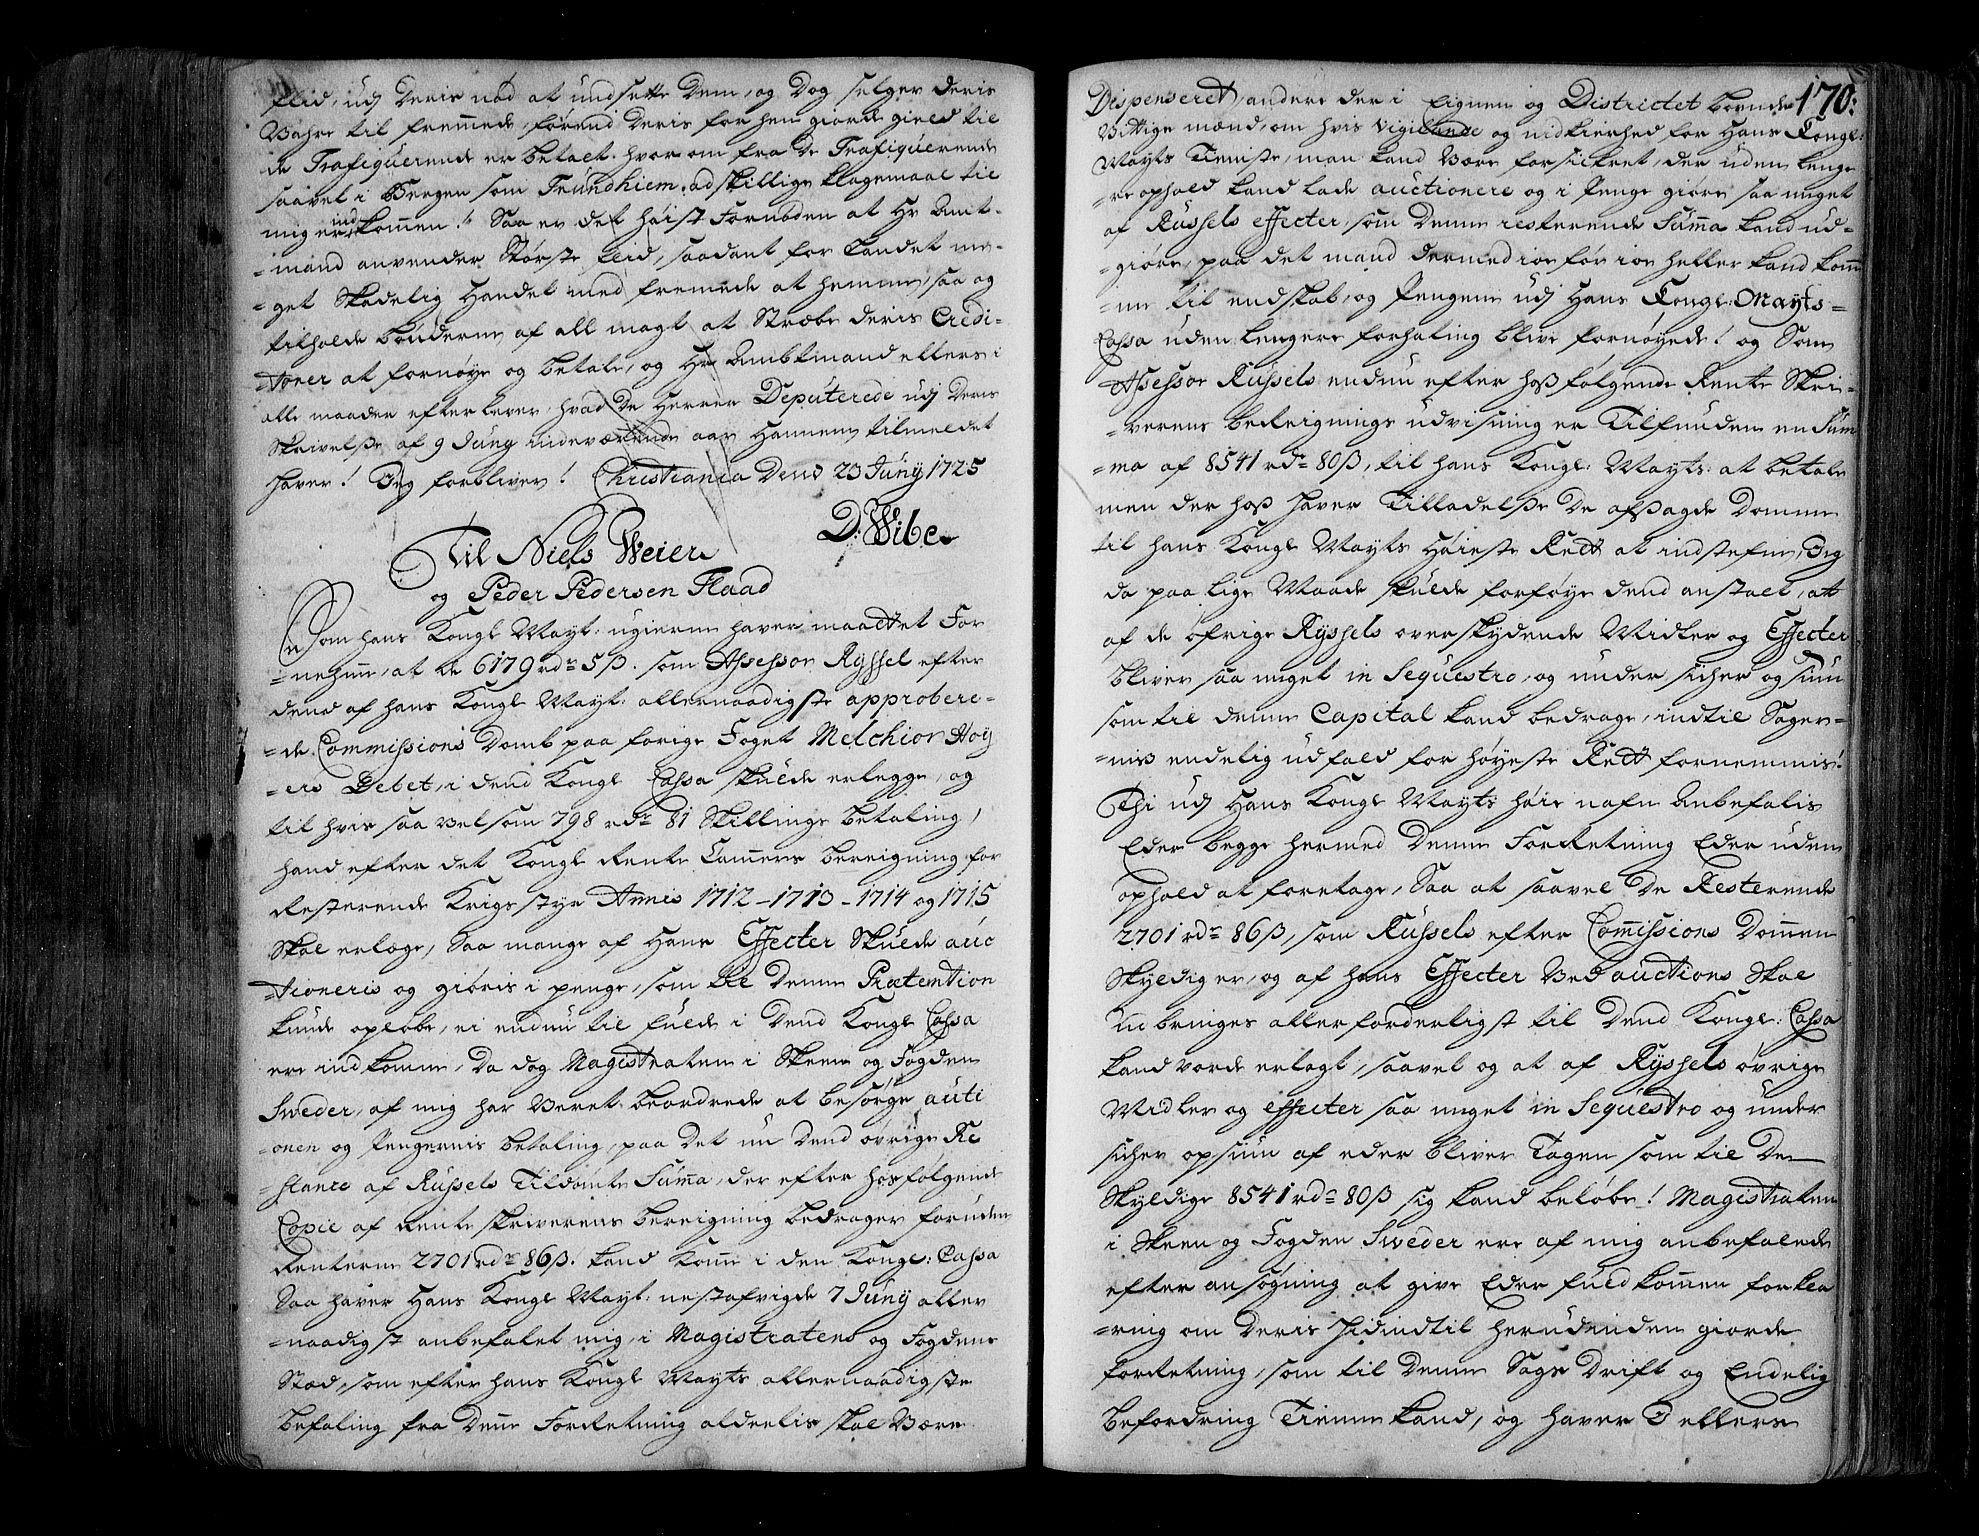 flid, udj deris nød at undsette dem, og dog selger deris
Vahre til fremmede, førend deris forhen giorde gield til
de Trafiquerende er betaet. hvor om fra de Trafiquerende
saavel i Bergen som Trundhiem, adskillige klagemaal til
mig ere indkommen! Saa er det høist Fornøden at Hr Amt-
-mand anvender Største flid, saadant for Landet me-
-get Skadelig Handel med fremmede at hemme, saa og
tilholde bønderne af all magt at Stræbe deris Credi-
-torer at fornøye og betale, og Hr Ambtmand ellers i
alle maader efterlever, hvad de Herrer Deputerede udj deris
Skrivelße af 9 Juny indeværende aar Hannem tilmeldet
haver! Jeg forbliver! Christiania Dend 23 Juny 1725
D: Wibe
Til Niels Weier
og Peder Pedersen Flaad
Som hans Kongl Mayt: ugierne haver maattet For
-nehme, at de 6179 rdr 5 ß. som Assessor Ryssel efter
dend af hans Kongl Mayt: allernaadigste approbere-
-de Commissions Domb paa forige Foget Melchior Hoy
-ers Debet, i dend Kongl Cassa skulde erlegge, og
til hvis saa velsom 798 rdr 81 Skillings betaling,
hand efter det Kongl Rente Cammers bereigning for
Resterende Krigs styr Annis 1712 - 1713 - 1714 og 1715
Skal erlege, Saa mange af Hans Effecter Skulde auc
-tioneris og giøris i penge, som til denne Prætention
kunde opløbe, ei endnu til fulde i Dend Kongl Cassa
ere indkomne, Da dog Magistraten i Skeen og Fogden
Sweder, af mig har Veret beordrede at besørge aucti
-onen og Pengernis betaling, paa det nu dend øvrige Re
-stance af Russels Tildømte Summa, der efter hosfølgende
Copie af Rente skriverens bereigning bedrager foruden
Renterne 2701 rdr 86 ß. kand komme i den Kongl: Cassa
Saa haver Hans Kongl Mayt: nestafvigte 7 Juny aller
-naadigst anbefalet mig, i Magistratens og Fogdens
Stæd, som efter hans Kongl Mayts allernaadigste
befaling fra denne Forretning aldeelis skal Være
170:
Dispenseret, andere der i Eignen og Districtet boende
Vittige mænd, om hvis Vigilance og nidkierhed for Hans Kongl:
Mayts Tieniste, man kand Være forsickret, der uden lenge
-re ophold kand lade auctionere og i Penge giøre saa meget
af Russels effecter, som denne resterende Summa kand ud-
-giøre, paa det mand dermed ioe før ioe heller kand komme
-me til endskab, og Pengene udj Hans Kongl: Mayts-
Cassa uden lengere forhaling blive fornøyede! og Som
Assessor Russels endnu efter hoßfølgende Rente Skri-
-verens bereignings udvisning er Tilfunden en Sum
-ma af 8541 rdr 80 ß, til hans Kongl: Mayts: at betale
men der hoß haver Tilladelße de afsagde Domme
til hans Kongl Mayts Høieste Rett at indstefne, Jeg
da paa lige Maade skulde forføye dend anstalt, at
af de øfrige Ryssels overskydende Midler og Effecter
bliver saa meget in Sequestro, og under sicher opsiun
som til denne Capital kand bedrage, indtil Sager-
-nis endelig udfald for Høyeste Rett fornemmis!
Thi udj Hans Kongl Mayts høie nafn Anbefalis
Eder begge hermed denne Forretning Eder uden
ophold at foretage, Saa at saavel de Resterende
2701 rdr 86 ß, som Russels efter Commissions Dommen
Skyldig er, og af hans Effecter Ved auctions Skal
udbringes allerforderligst til dend Kongl: Cassa
kand vorde erlagt, saavel og at af Ryssels øvrige
Midler og effecter saa meget in Sequestro og under
sicher opsiun af eder bliver Tagen som til de
Skyldige 8541 rdr 80 ß sig kand beløbe! Magistraten
i Skeen og Fogden Sweder ere af mig anbefalede
efter ansøgning at give Eder fuldkommen forkla
-ring om deris hidindtil herudinden giorde
forretning, som til denne Sags Drift og Endelig
befordring Tienne kand, og haver I ellers